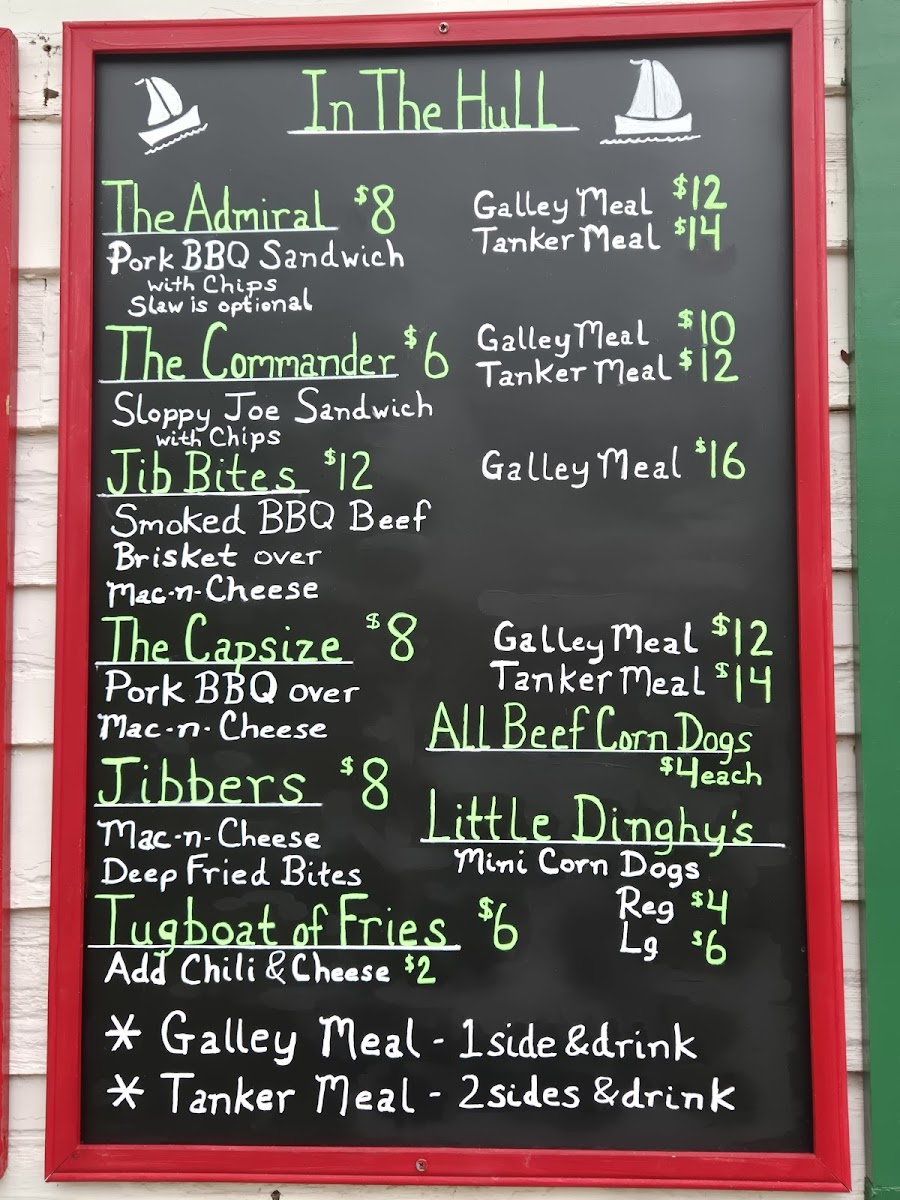 In The Hull
The Admiral $8
Galley Meal $12
Tanker Meal $14
Pork BBQ Sandwich
with Chips
Slaw is optional
The Commander $6
Galley Meal $10
Tanker Meal $12
Sloppy Joe Sandwich
with Chips
Jib Bites $12
Galley Meal $16
Smoked BBQ Beef
Brisket over
Mac-n-Cheese
The Capsize $8
Galley Meal $12
Tanker Meal $14
Pork BBQ over
Mac-n-Cheese
All Beef Corn Dogs
$4 each
Jibbers $8
Mac-n-Cheese
Deep Fried Bites
Little Dinghy's
Mini Corn Dogs
Reg $4
Lg $6
Tugboat of Fries $6
Add Chili & Cheese $2
* Galley Meal - 1 side & drink
* Tanker Meal - 2 sides & drink